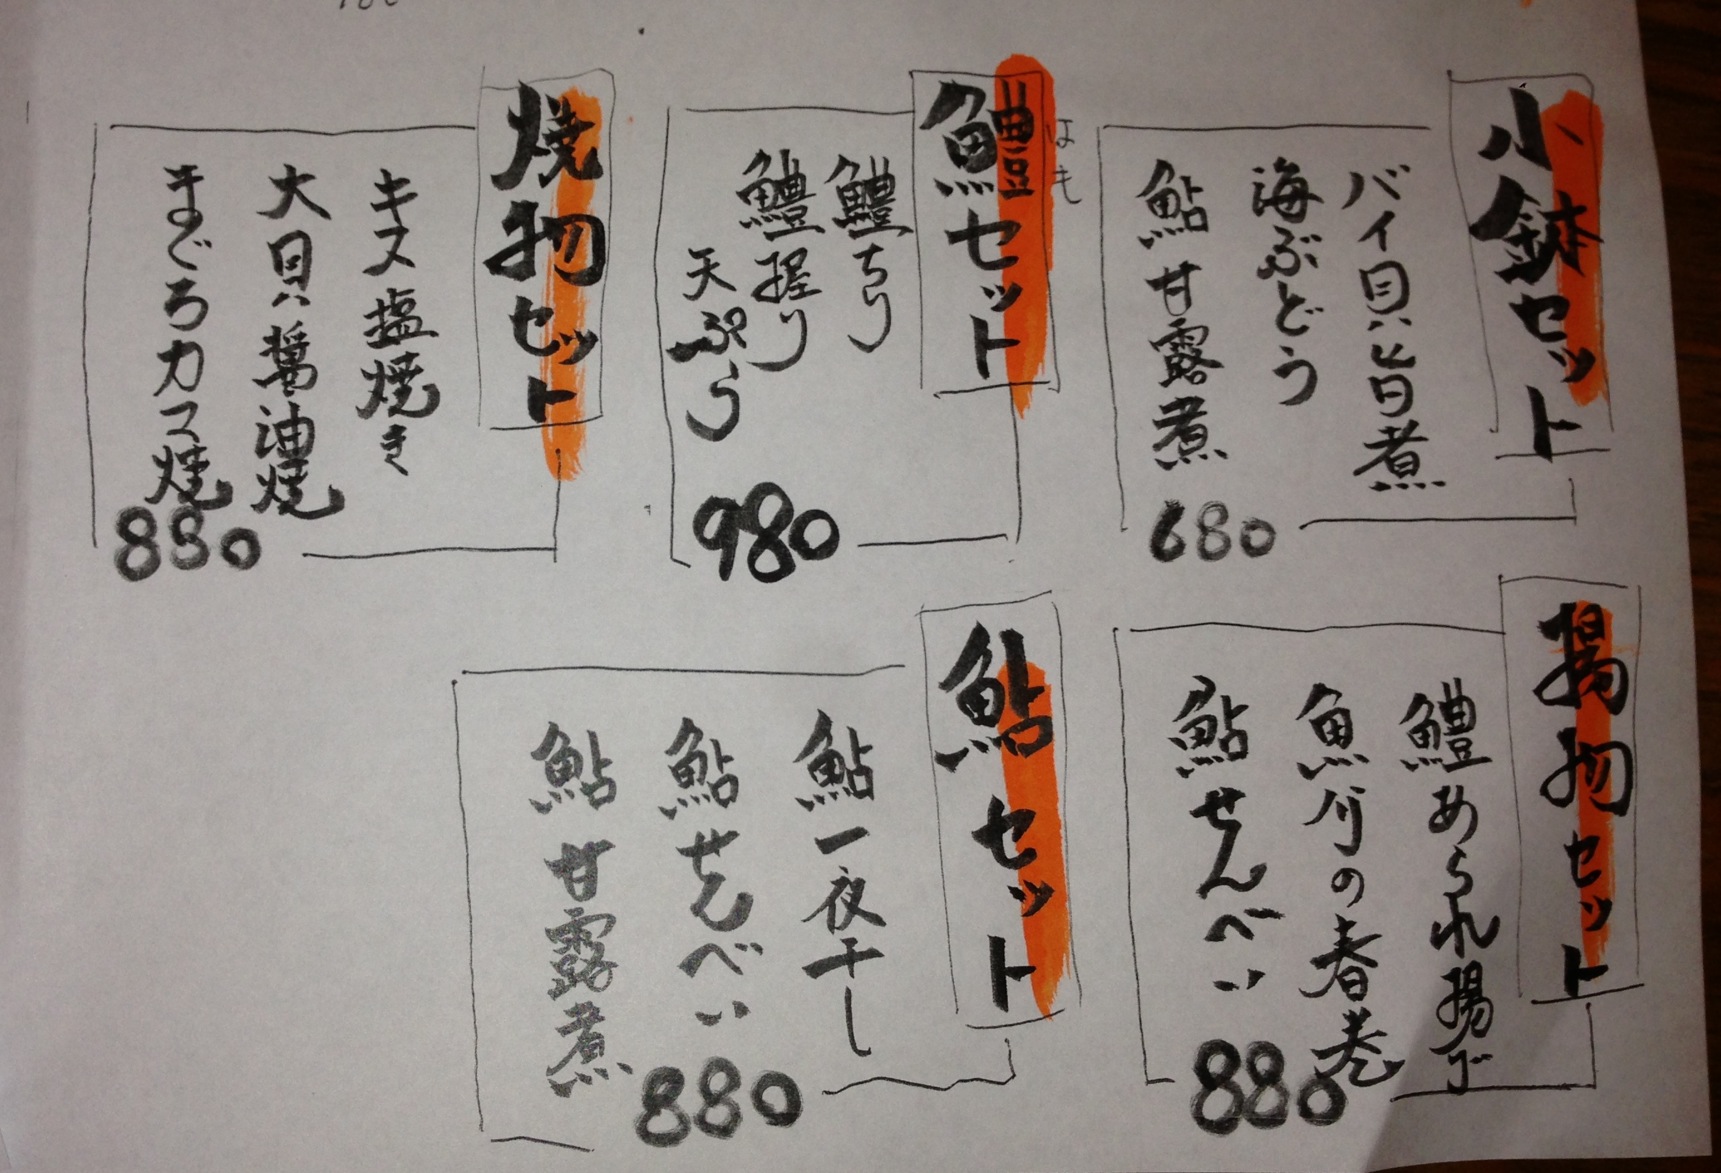 小鉢セット
バイ貝旨煮
海ぶどう
鮎甘露煮
680
鱧セット
はも
鱧ちり
鱧握り
天ぷら
980
焼物セット
キス塩焼き
大貝醤油焼
まぐろカマ焼
880
揚物セット
鱧あられ揚げ
魚河の春巻
鮎せんべい
880
鮎セット
鮎一夜干し
鮎せんべい
鮎甘露煮
880